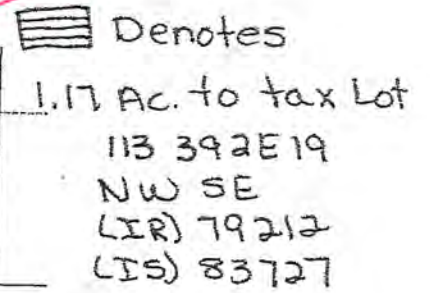 Denotes
1.17 Ac. to tax Lot
113 392E19
NW SE
(IR) 79212
(IS) 83727